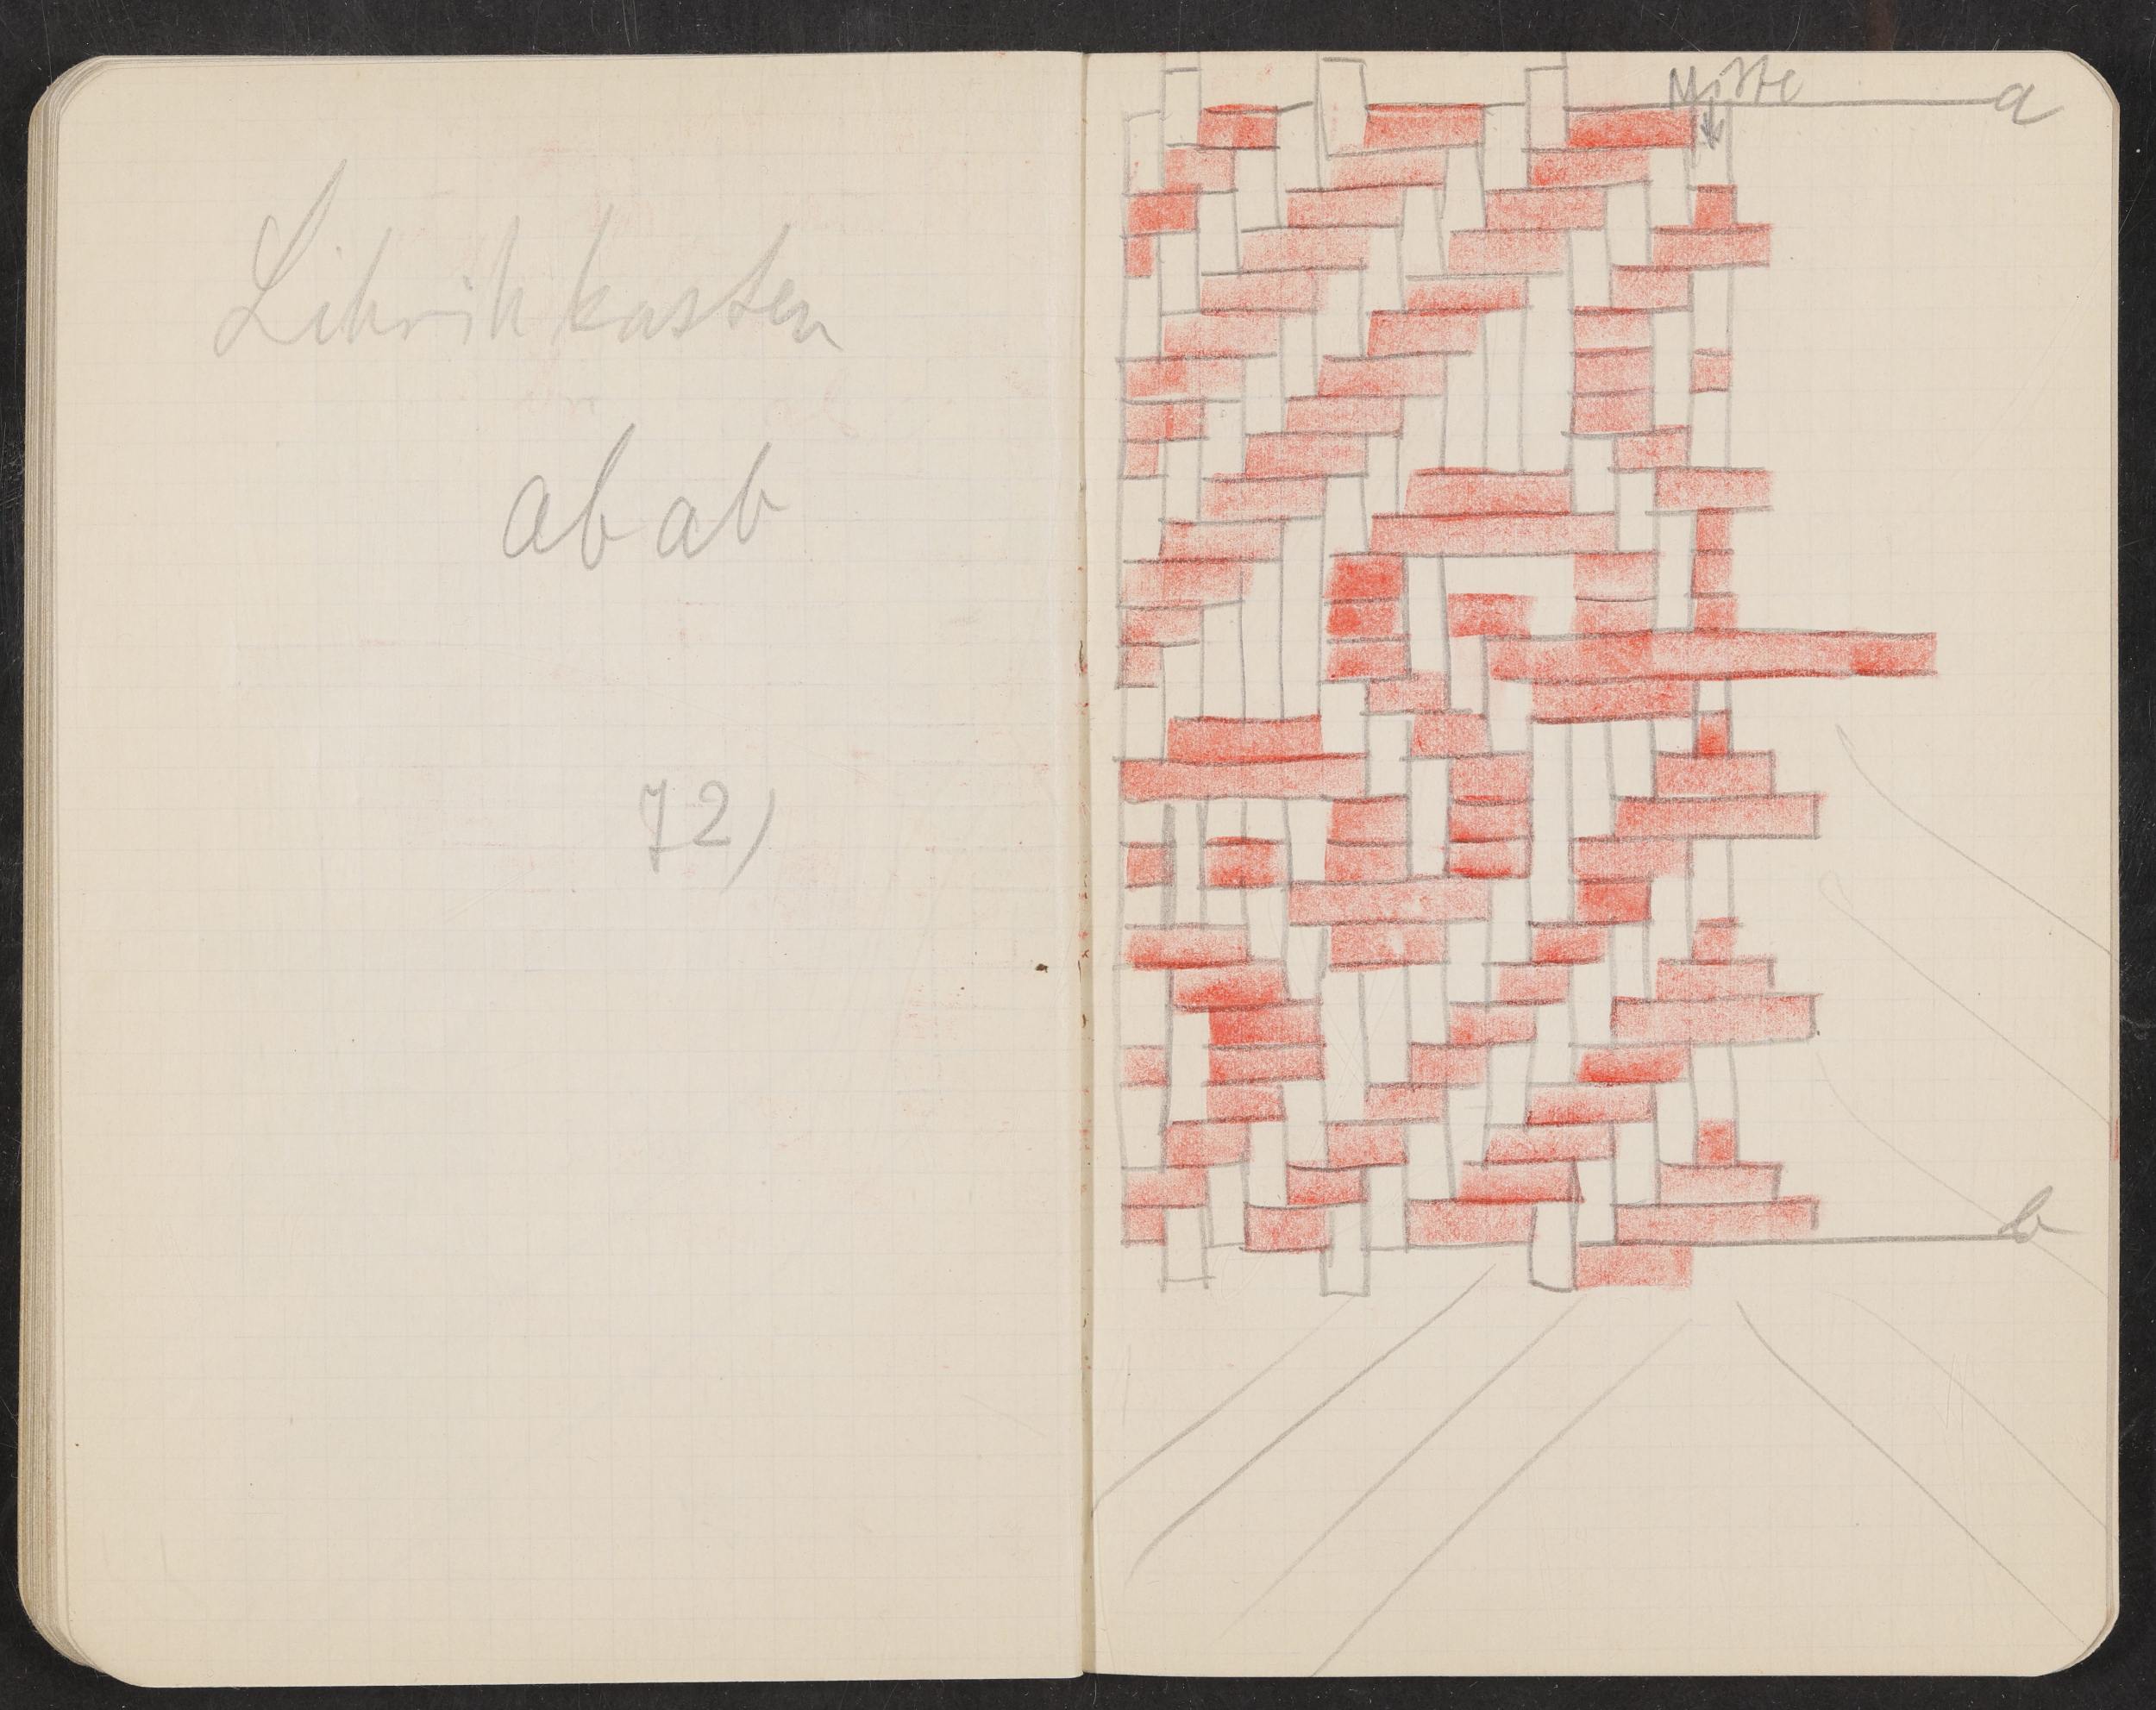 Likrikkasten
ab ab
72)
Mitte
a
b